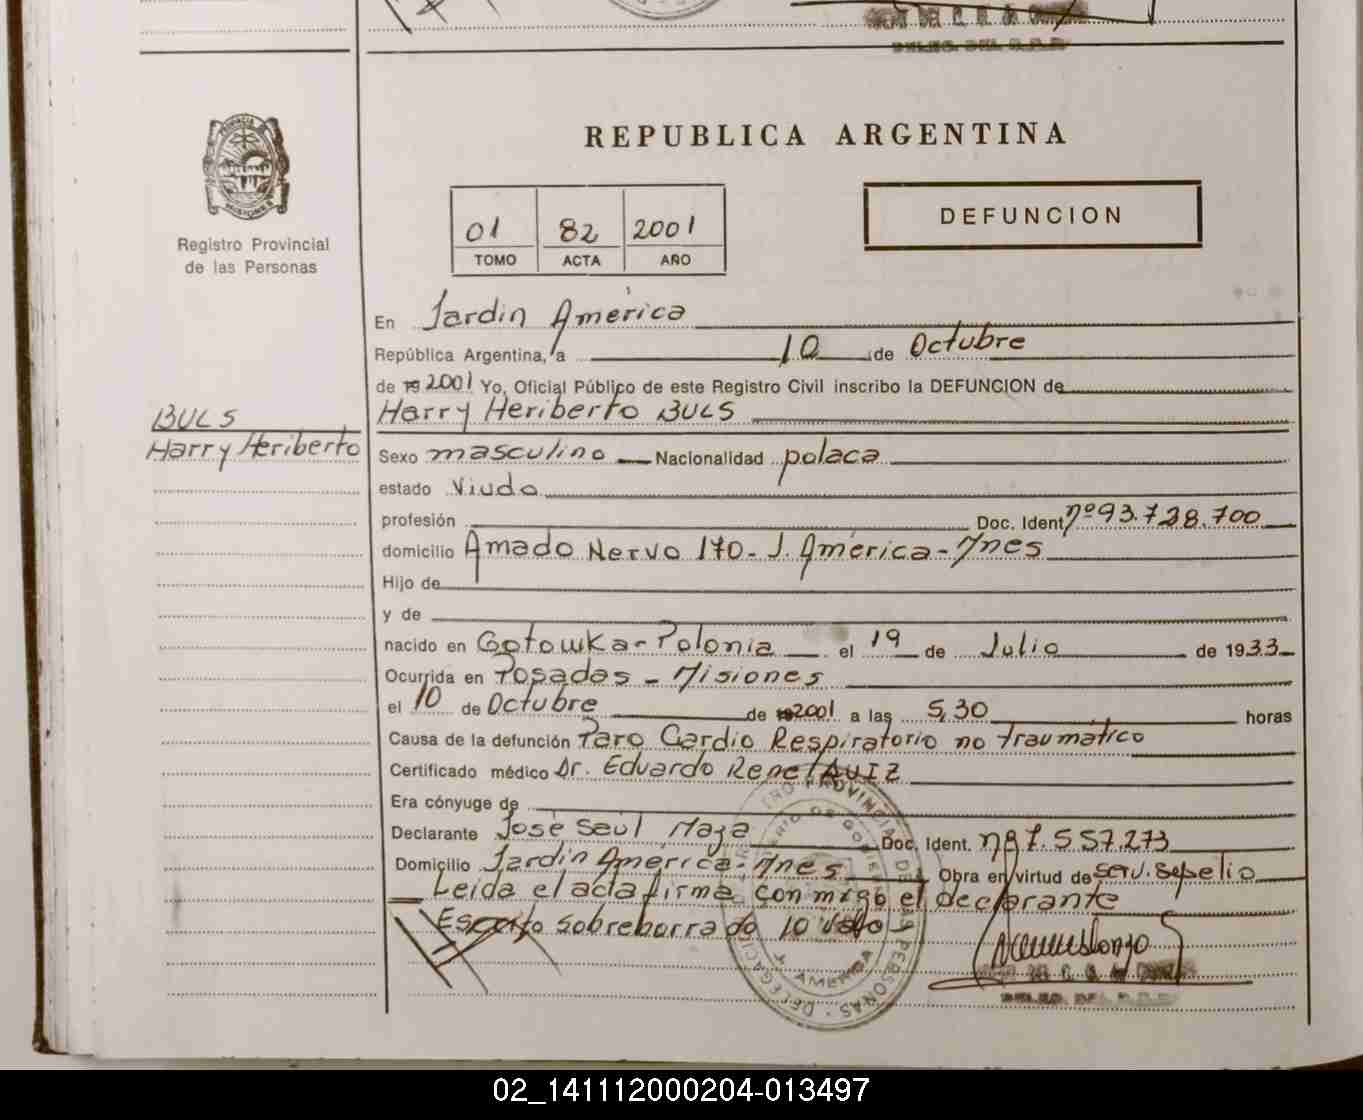 PROVINCIA DE
MISIONES
Registro Provincial
de las Personas
REPUBLICA ARGENTINA
01 82 2001
TOMO ACTA AÑO
DEFUNCION
En Jardin América
República Argentina, a 10 de Octubre
de 19 2001 Yo, Oficial Público de este Registro Civil inscribo la DEFUNCION de
Harry Heriberto BULS
BULS
Harry Heriberto
Sexo masculino Nacionalidad polaca
estado Viudo
profesión Doc. Ident nº 93.728.700
domicilio Amado Nervo 170- J. América- Mnes
Hijo de
y de
nacido en Gotowka- Polonia el 19 de Julio de 1933
Ocurrida en Posadas - Misiones
el 10 de Octubre de 2001 a las 5,30 horas
Causa de la defunción Paro Cardio Respiratorio no traumático
Certificado médico Dr. Eduardo Rene RUIZ
Era cónyuge de
Declarante José Saúl Maza Doc. Ident. nº 7.557.273
Domicilio Jardin América- Mnes Obra en virtud de serv. sepelio
Leida el acta firma conmigo el declarante
Escrito sobreborrado 10 Vale
J. AMERICA
02_141112000204-013497